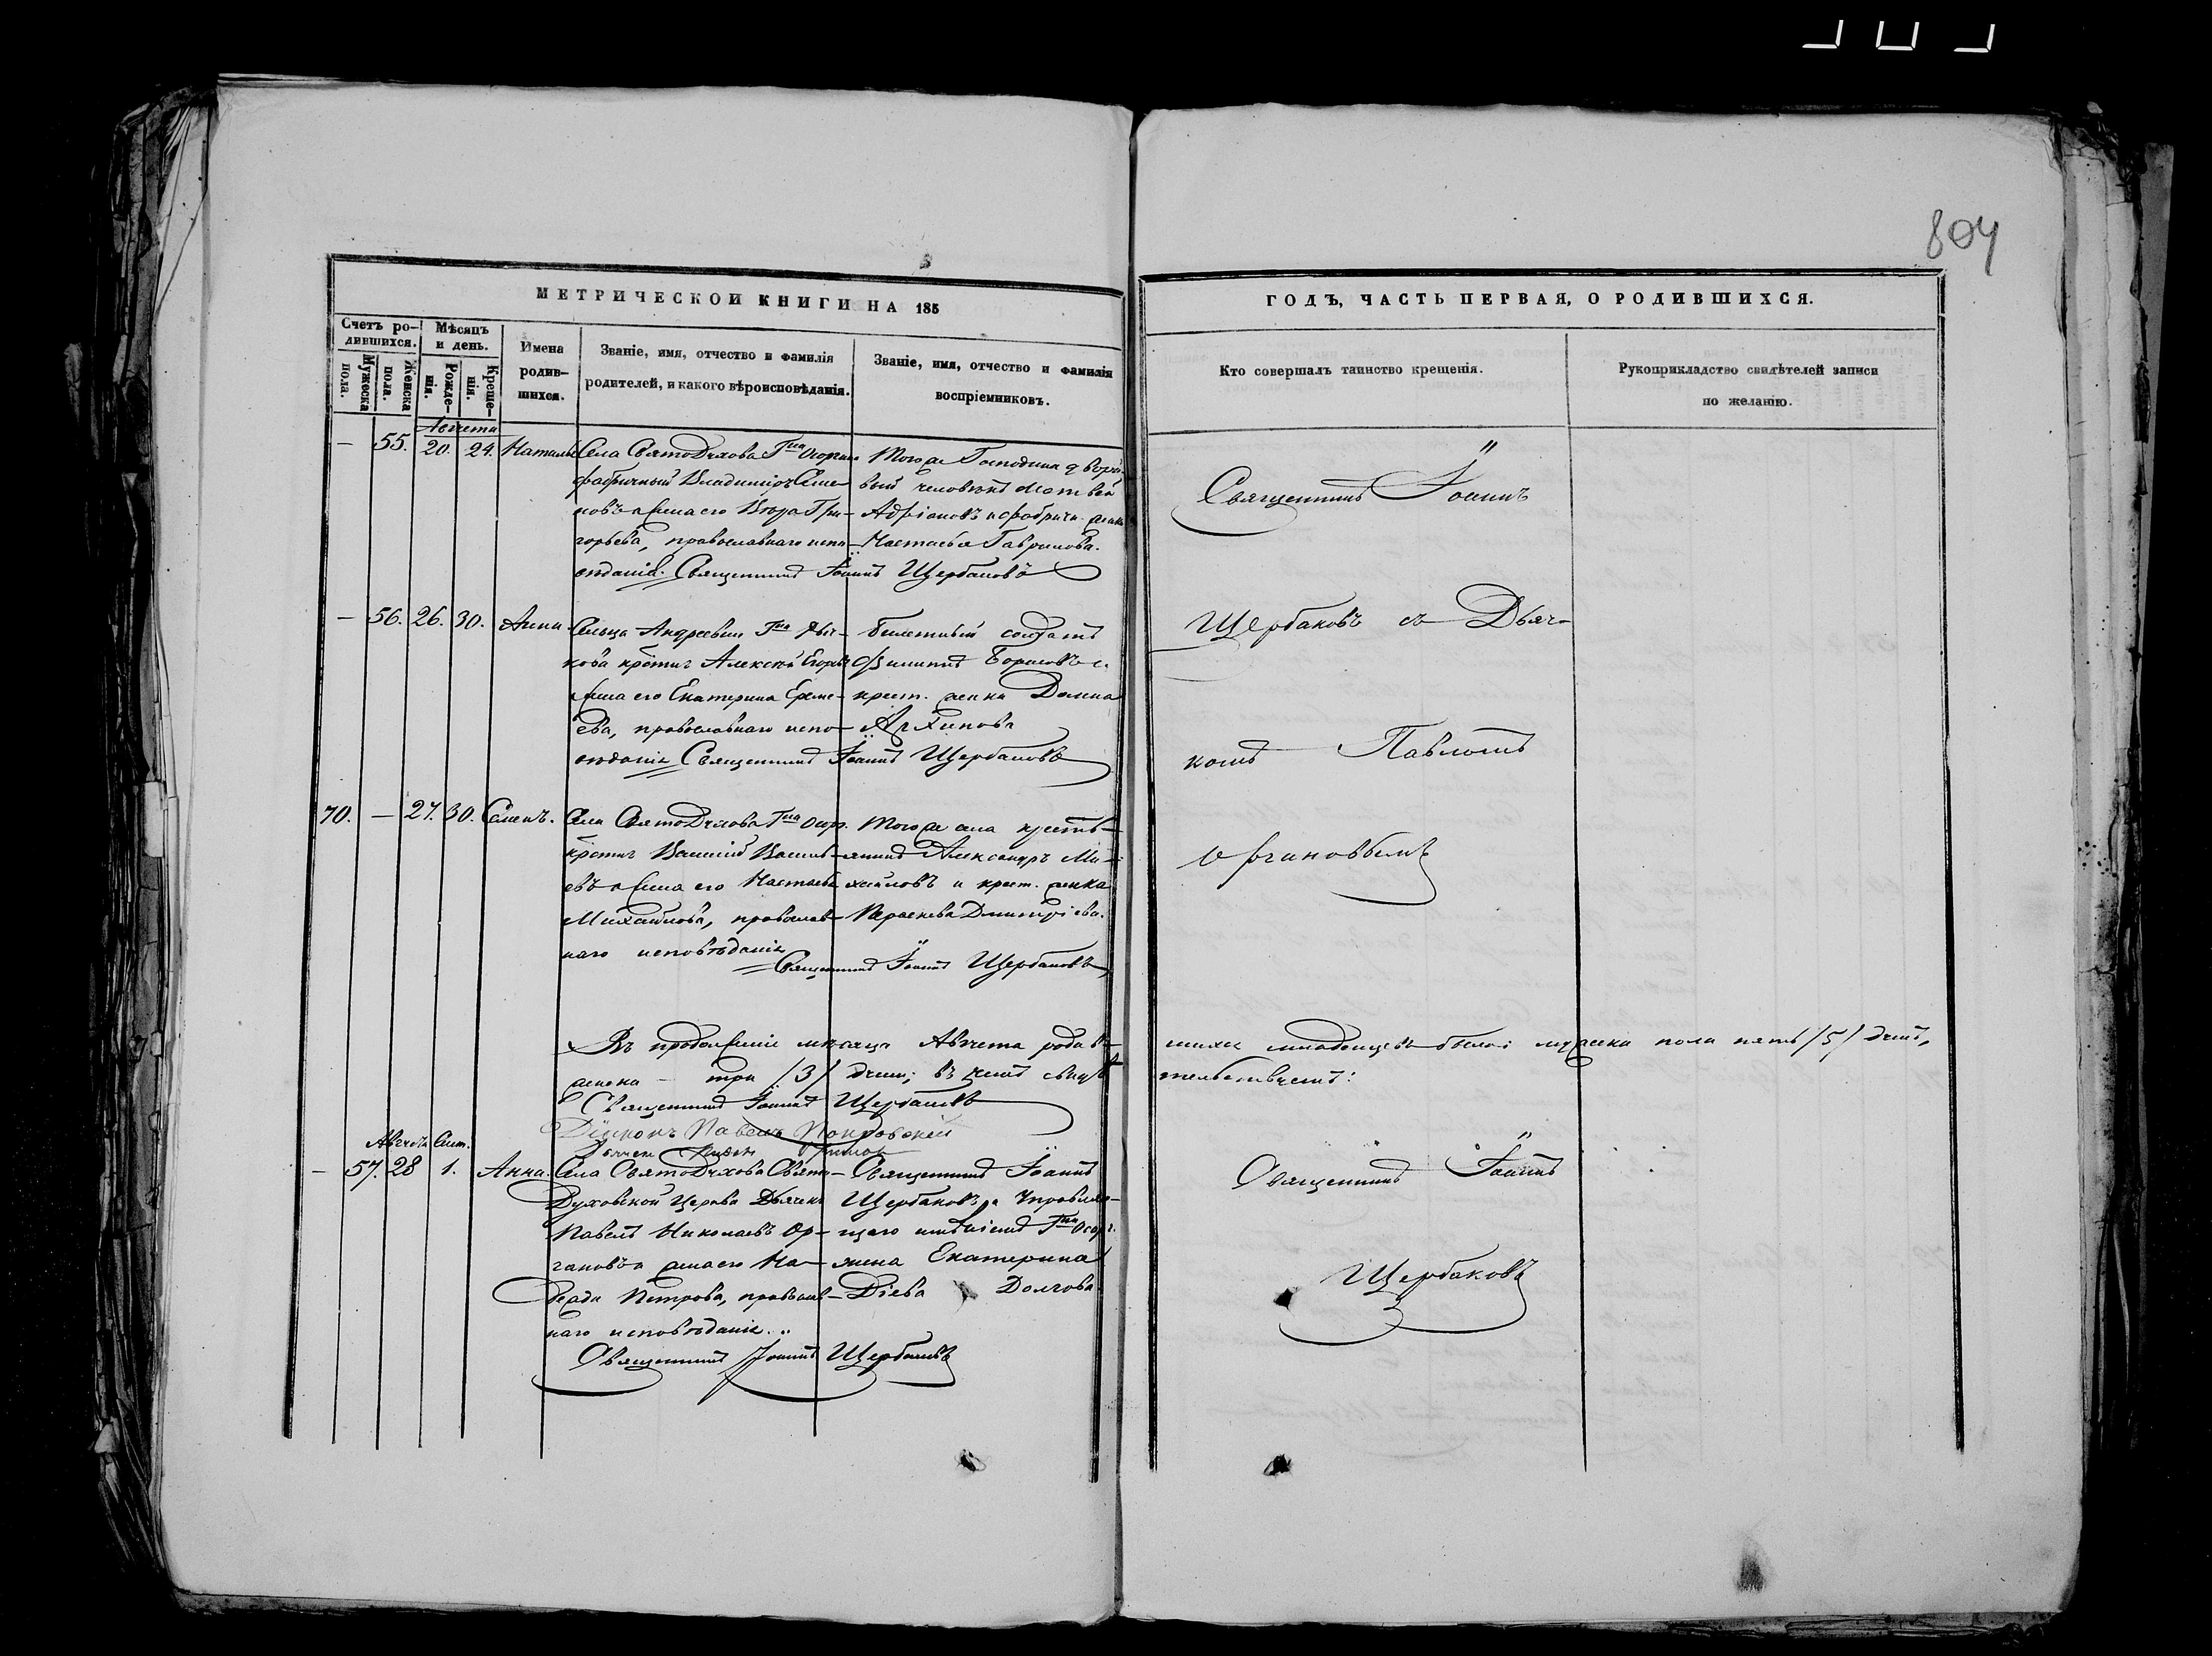 804
МЕТРИЧЕСКОЙ КНИГИ НА 185
ГОДЪ, ЧАСТЬ ПЕРВАЯ, О РОДИВШИХСЯ.
Счетъ ро-
дившихся.
Мужеска
пола.
Женска
пола.
Мѣсяцъ
и день.
Рожде-
нія.
Креще-
нія.
Имена
родив-
шихся.
Званіе, имя, отчество и фамилія
родителей, и какого вѣроисповѣданія.
Званіе, имя, отчество и фамилія
воспріемниковъ.
Кто совершалъ таинство крещенія.
Рукоприкладство свидѣтелей записи
по желанію.
Августа
— 55. 20. 24. Наталья
Села СвятоДухова Гна
фабричный Владиміръ Семе-
новъ и жена его Вѣра Гри-
горьева, православнаго испо-
вѣданія. Священникъ Іоаннъ Щербаковъ
Того же Господина дворо-
вый человѣкъ Матвей
Адріановъ и фабрич. женка
Настасья Гаврилова.
— 56. 26. 30. Анна.
Сельца Андреевки Гна Дья-
кова крѣтнъ Алексѣй Егоровъ
жена его Екатерина Ереме-
ева, православнаго испо-
вѣданія Священникъ Іоаннъ Щербаковъ
билетный солдатъ
Филиппъ Борисовъ и
крест. женка Домна
Архипова
70. — 27. 30. Семенъ.
Села СвятоДухова Гна Осор.
крѣтнъ Василій Василь-
евъ и жена его Настасья
Михайлова, православ-
наго исповѣданія
Священникъ Іоаннъ Щербаковъ
Того же села кресть-
янинъ Александръ Ми-
хайловъ и крест. женка
Параскева Димитріева.
Священникъ Іоаннъ
Щербаковъ съ Дьяч-
комъ Павломъ
Органовымъ
Въ продолженіе мѣсяца Августа родив-
шихся младенцевъ было: мужеска пола пять /5/ душъ,
женска — три /3/ души; въ чемъ свидѣ-
тельствуемъ:
Священникъ Іоаннъ Щербаковъ
Діаконъ Павелъ Покровскій
Августа Сент.
— 57. 28 1. Анна.
Села СвятоДухова Свято-
Духовской Церкви Дьячекъ
Павелъ Николаевъ Ор-
гановъ и жена его На-
дежда Петрова, православ-
наго исповѣданія.
Священникъ Іоаннъ Щербаковъ
Священникъ Іоаннъ
Щербаковъ и Управляю-
щаго имѣніемъ Гна Осор.
жена Екатерина
Долгова
Священникъ Іоаннъ
Щербаковъ